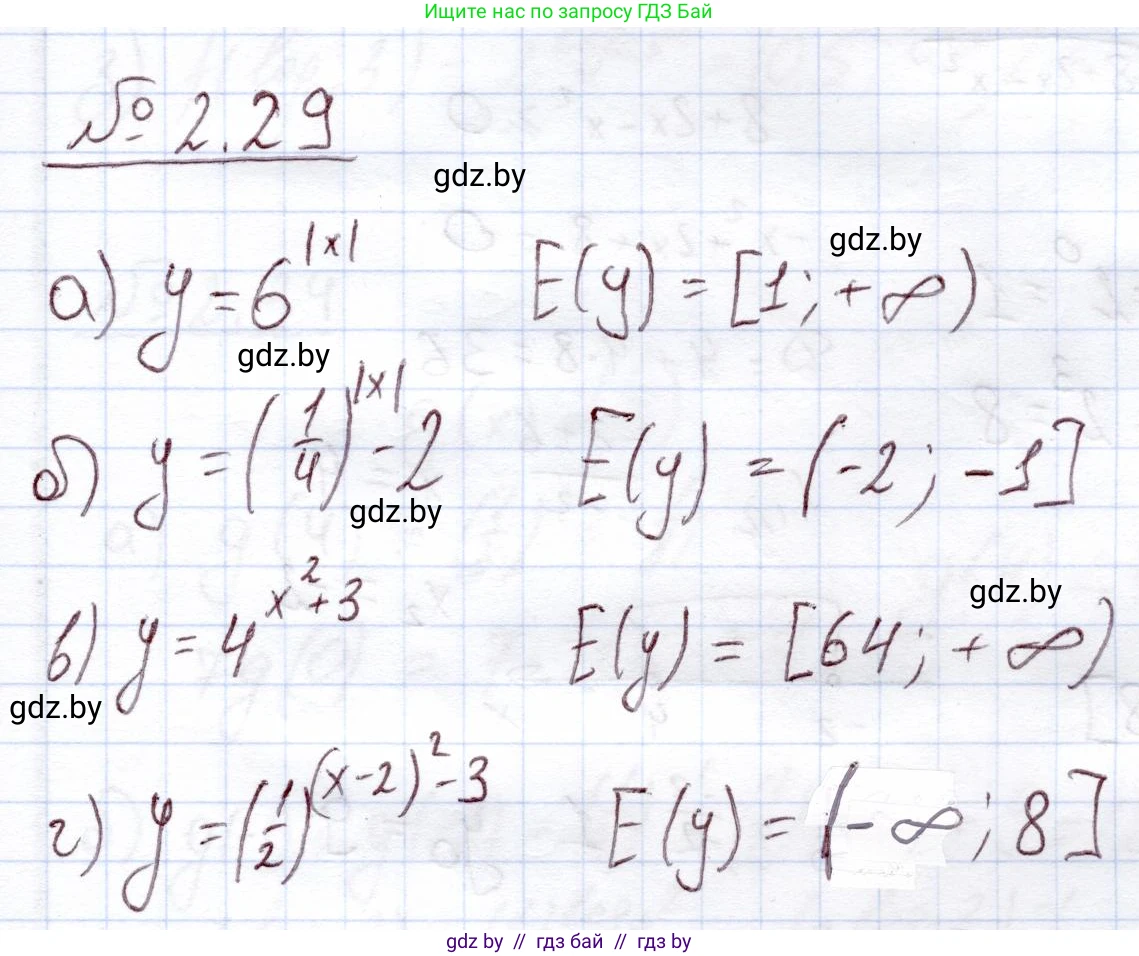 Ищите нас по запросу ГДЗ Бай
№ 2.29
gdz.by
а) y = 6^|x| E(y) = [1; +∞)
gdz.by
gdz.by
б) y = (1/4)^|x| - 2 E(y) = (-2; -1]
gdz.by
в) y = 4^(x²+3) E(y) = [64; +∞)
gdz.by
gdz.by
г) y = (1/2)^((x-2)²-3) E(y) = (-∞; 8]
gdz by // гдз бай // гдз by